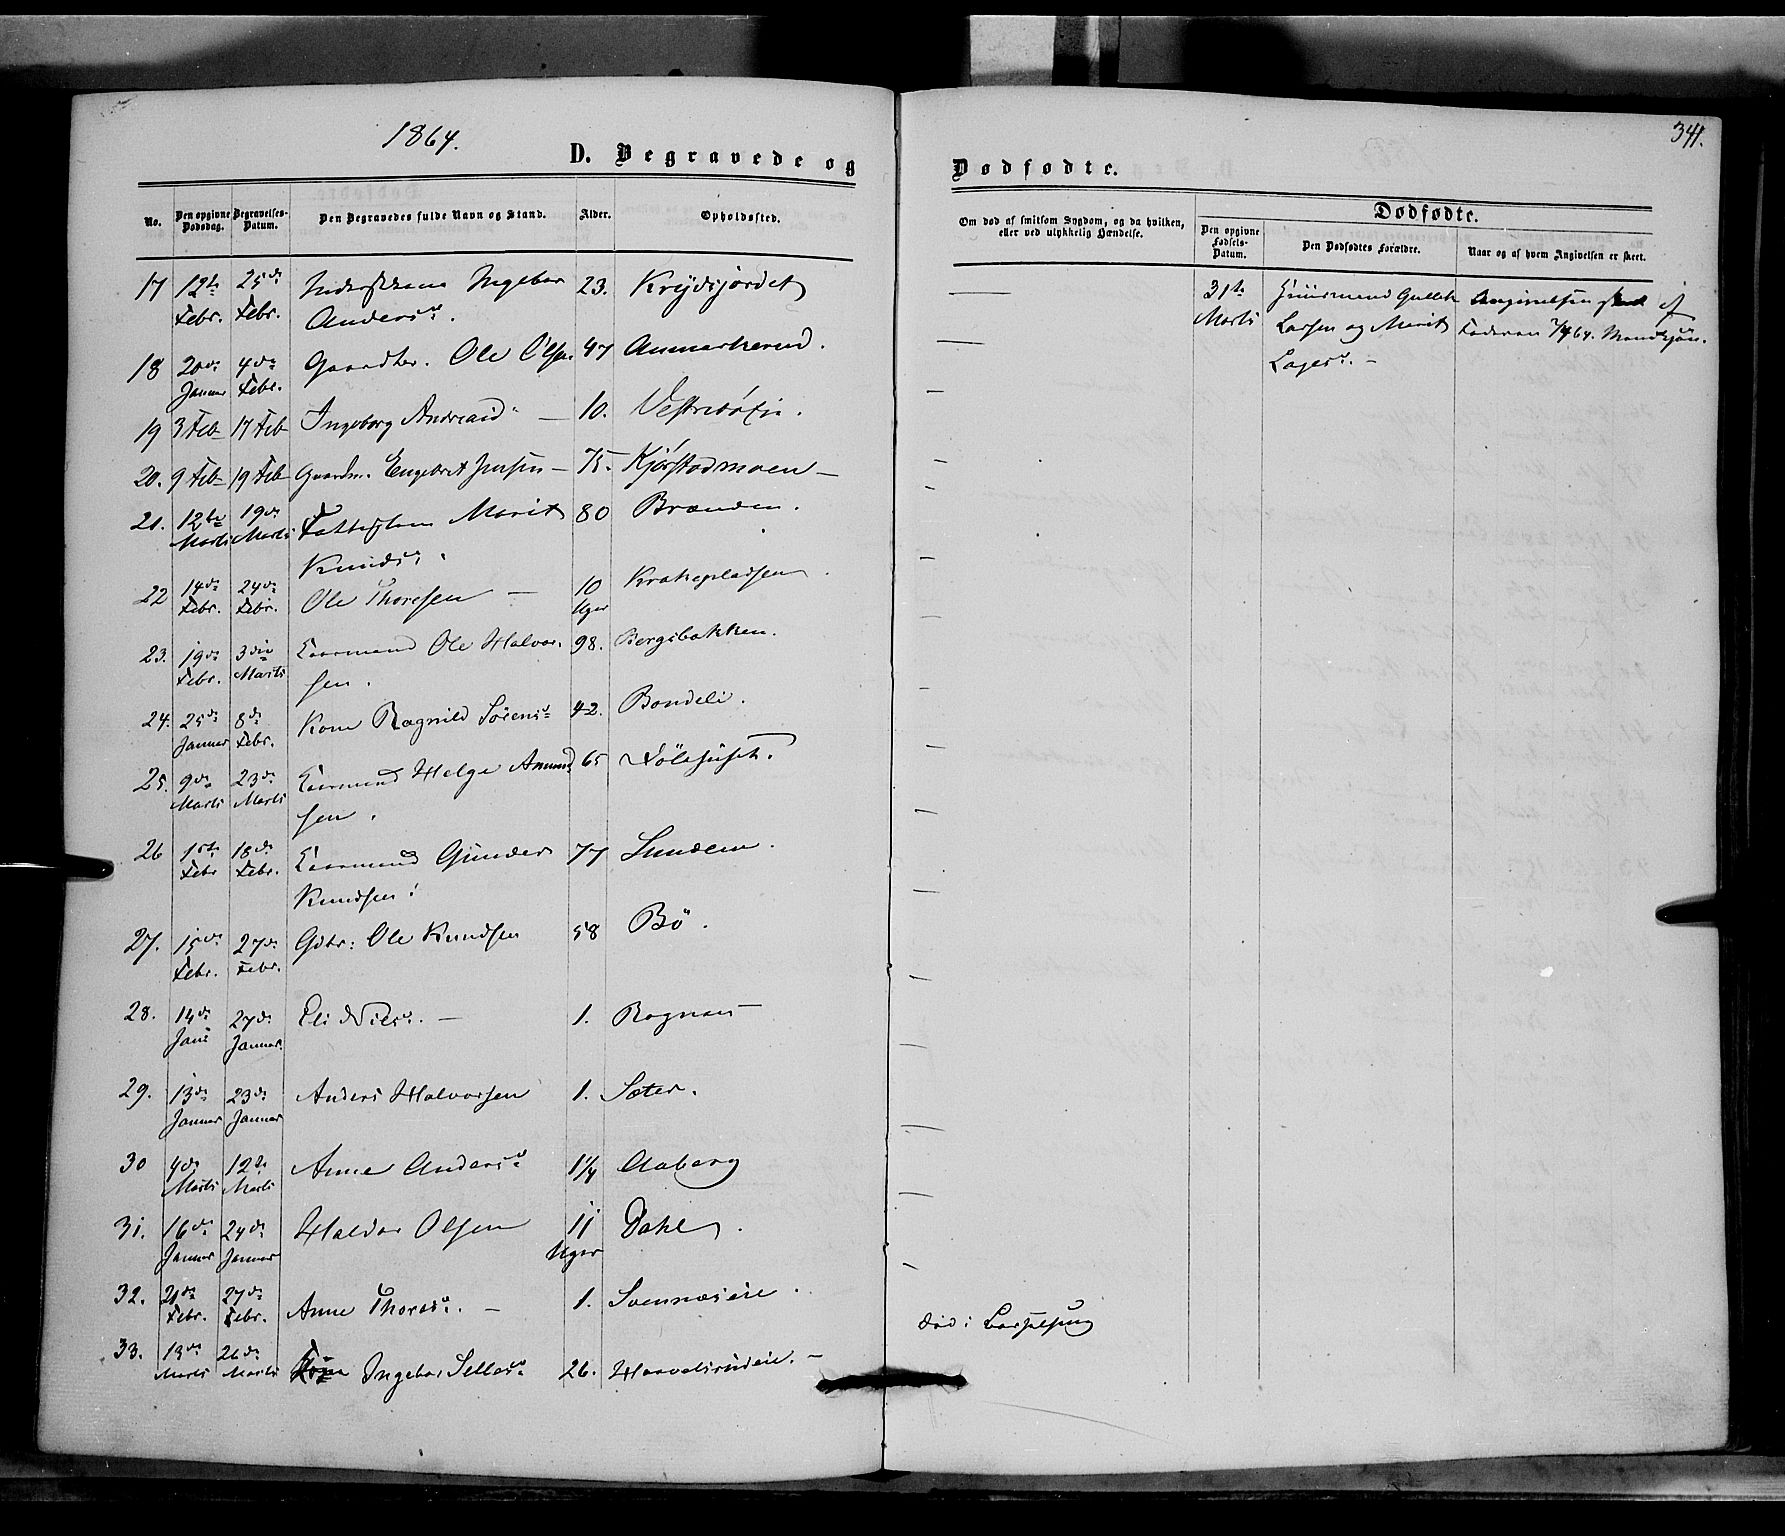 1864.
341.
D. Begravede og
Dødfødte.
No.
Den opgivne Dødsdag.
Begravelses-Datum.
Den Begravedes fulde Navn og Stand.
Alder.
Opholdssted.
Om død af smitsom Sygdom, og da hvilken,
eller ved ulykkelig Hændelse.
Dødfødte.
Den opgivne Fødsels-Datum.
Den Dødfødtes Forældre.
Naar og af hvem Angivelsen er skeet.
17 12te Febr. 25de Febr. Ingebor 23. Krydsjordet
Anders
31te Marts Huusmand Gullik Angivelsen af
Larsen og Marit Faderen 7/4 64.
Lages
18 20de Januar 4de Febr. Gaardbr. Ole Olsen 47 Aamarkerud.
19 3 Feb 17 Feb Ingeborg 10.
20. 9 Feb 19 Feb Gaardm. Engebret Jensen 75 Kjørstadmoen
21. 12te Marts 19de Marts Marit 80 Brænden.
Knuds
22 14de Febr. 24de Febr. Ole Thoresen 10 Uger Krakepladsen
23. 19de Febr. 3die Marts Ole Halvor- 98. Bergsbakken.
sen.
24. 25de Januar 8de Febr. Kone Ragnild Sørens 42. Bondeli.
25. 9de Marts 23de Marts Helge Amund 65
sen.
26 1ste Febr 18de Febr. Gunder 77 Sundem.
Knudsen
27. 15de Febr. 27de Febr. Gdbr: Ole Knudsen 58 Bö.
28. 14de 27de Januar. Eli Niels 1. Rognaas
29. 13de Januar 23de Januar Anders Halvorsen 1. Sæter.
30 4de Marts 12te Marts Anne Anders 1 1/4 Aaberg
31. 16de Januar 24de Januar Haldor Olsen 11 Uger Dahl.
32. 21de Febr. 27de Febr. Anne Thores 1. Svennæseie.
33. 13de Marts 26de Marts Ingebor 26. Haavelsrudeie.
død i Barselseng